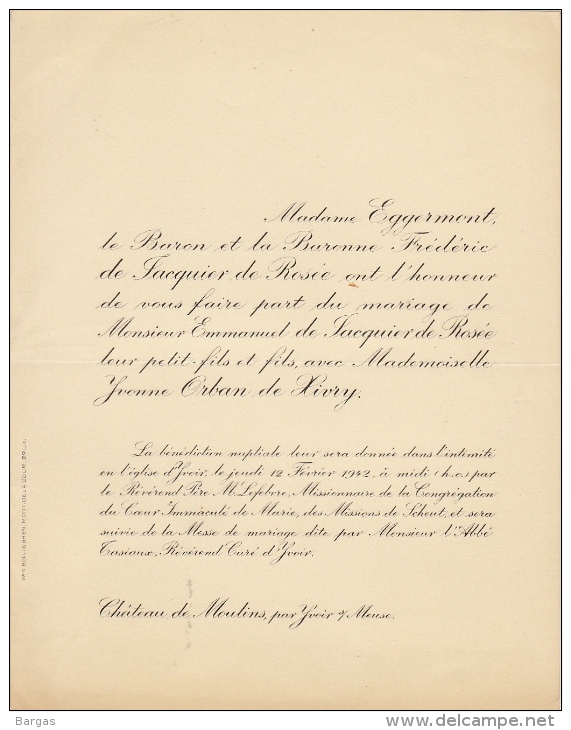 Madame Eggermont,
le Baron et la Baronne Frédéric
de Jacquier de Rosée ont l'honneur
de vous faire part du mariage de
Monsieur Emmanuel de Jacquier de Rosée
leur petit-fils et fils, avec Mademoiselle
Yvonne Orban de Xivry.
La bénédiction nuptiale leur sera donnée dans l'intimité
en l'église d'Yvoir, le jeudi 12 Février 1942, à midi (h.c.) par
le Révérend Père M. Lefebvre, Missionnaire de la Congrégation
du Cœur Immaculé de Marie, des Missions de Scheut, et sera
suivie de la Messe de mariage dite par Monsieur l'Abbé
Tasiaux, Révérend Curé d'Yvoir.
Château de Moulins, par Yvoir s/ Meuse.
Bargas
www.delcampe.net